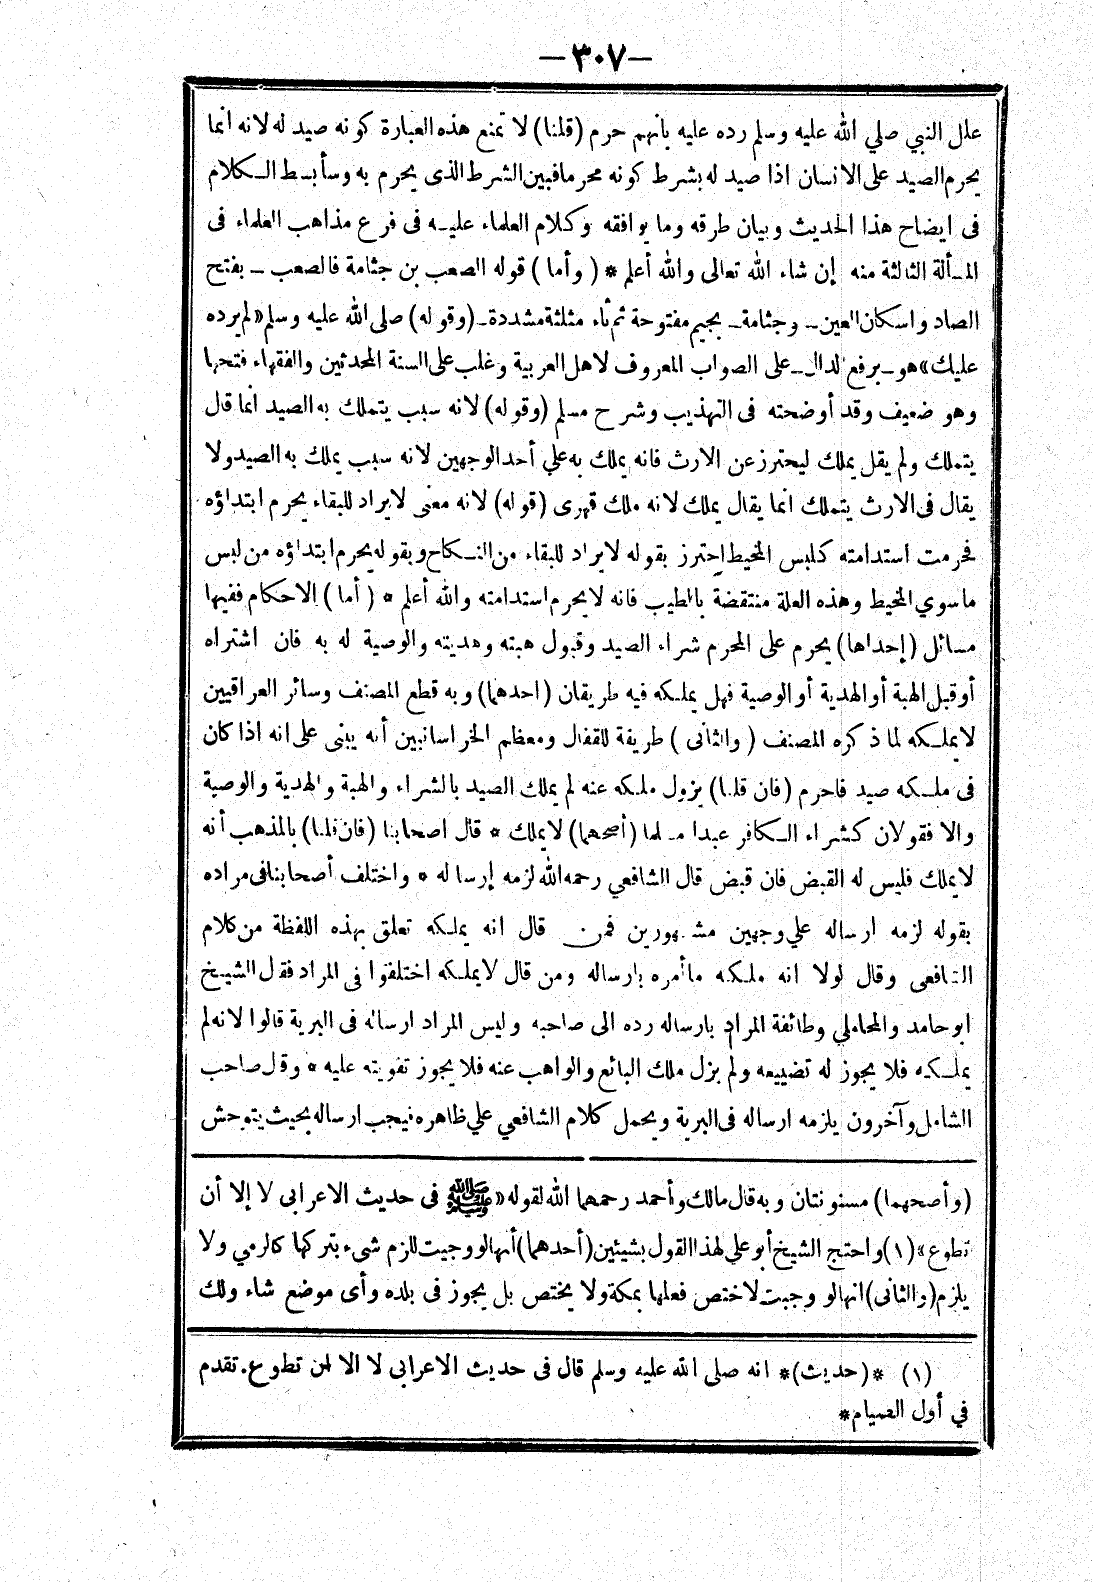 —٣٠٧—
علل النبي صلي الله عليه وسلم رده عليه بانهم حرم (قلنا) لا تمنع هذه العبارة كونه صيد له لانه انما
يحرم الصيد على الانسان اذا صيد له بشرط كونه محرما فبين الشرط الذى يحرم به وسأبسط الكلام
فى ايضاح هذا الحديث وبيان طرقه وما يوافقه وكلام العلماء عليه فى فرع مذاهب العلماء فى
المسألة الثالثة منه إن شاء الله تعالى والله أعلم * (وأما) قوله الصعب بن جثامة فالصعب ــ بفتح
الصاد واسكان العين ــ وجثامة ــ بجيم مفتوحة ثم ثاء مثلثة مشددة ــ (وقوله) صلى الله عليه وسلم «لم نرده
عليك» هو ــ برفع الدال ــ على الصواب المعروف لاهل العربية وغلب على السنة المحدثين والفقهاء فتحها
وهو ضعيف وقد أوضحته فى التهذيب وشرح مسلم (وقوله) لانه سبب يتملك به الصيد انما قال
يتملك ولم يقل يملك ليحترز عن الارث فانه يملك به علي أحد الوجهين لانه سبب يملك به الصيد ولا
يقال فى الارث يتملك انما يقال يملك لانه ملك قهرى (قوله) لانه معنى لايراد للبقاء يحرم ابتداؤه
فحرمت استدامته كلبس المخيط احترز بقوله لايراد للبقاء من النكاح وبقوله يحرم ابتداؤه من لبس
ماسوي المخيط وهذه العلة منتقضة بالطيب فانه لايحرم استدامته والله أعلم * (أما) الاحكام ففيها
مسائل (إحداها) يحرم على المحرم شراء الصيد وقبول هبته وهديته والوصية له به فان اشتراه
أو قبل الهبة أو الهدية أو الوصية فهل يملكه فيه طريقان (احدهما) وبه قطع المصنف وسائر العراقيين
لايملكه لما ذكره المصنف (والثانى) طريقة للقفال ومعظم الخراسانيين أنه يبنى على انه اذا كان
فى ملكه صيد فاحرم (فان قلنا) يزول ملكه عنه لم يملك الصيد بالشراء والهبة والهدية والوصية
والا فقولان كشراء الكافر عبدا مسلما (أصحهما) لايملك * قال اصحابنا (فان قلنا) بالمذهب أنه
لايملك فليس له القبض فان قبض قال الشافعي رحمه الله لزمه إرساله * واختلف أصحابنا فى مراده
بقوله لزمه ارساله علي وجهين مشهورين فمن قال انه يملكه تعلق بهذه اللفظة من كلام
الشافعى وقال لولا انه ملكه ما أمره بارساله ومن قال لايملكه اختلفوا فى المراد فقال الشيخ
ابو حامد والمحاملي وطائفة المراد بارساله رده الى صاحبه وليس المراد ارساله فى البرية قالوا لانه لم
يملكه فلا يجوز له تضييعه ولم يزل ملك البائع والواهب عنه فلا يجوز تفويته عليه * وقال صاحب
الشامل وآخرون يلزمه ارساله فى البرية ويحمل كلام الشافعي علي ظاهره فيجب ارساله بحيث يتوحش
(وأصحهما) مسنونتان وبه قال مالك وأحمد رحمهما الله لقوله «ﷺ فى حديث الاعرابى لا إلا أن
تطوع» (١) واحتج الشيخ أبو علي لهذا القول بشيئين (أحدهما) أنها لو وجبت للزم شىء بتركها كالرمي ولا
يلزم (والثانى) انها لو وجبت لاختص فعلها بمكة ولا يختص بل يجوز فى بلده وأى موضع شاء ولك
(١) *(حديث)* انه صلى الله عليه وسلم قال فى حديث الاعرابى لا الا ان تطوع. تقدم
في أول الصيام*